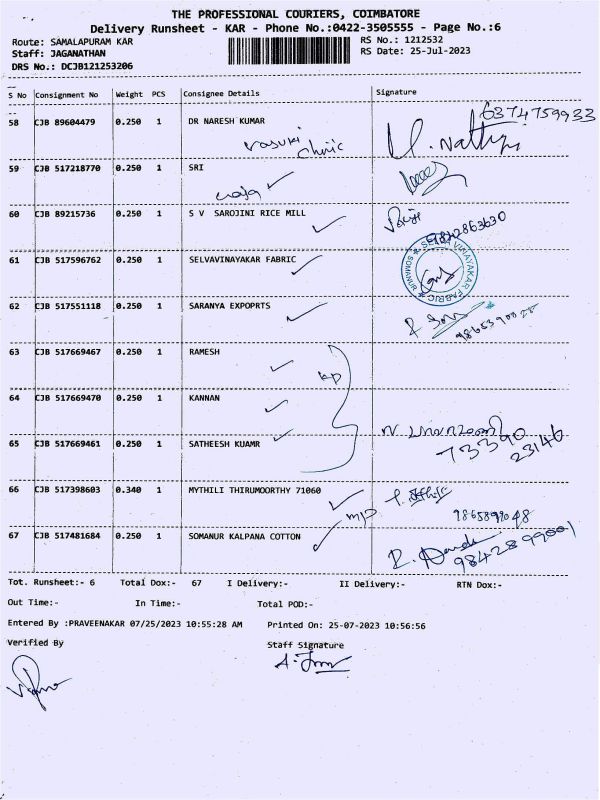 THE PROFESSIONAL COURIERS, COIMBATORE
Delivery Runsheet - KAR - Phone No.:0422-3505555 - Page No.:6
Route: SAMALAPURAM KAR
RS No.: 1212532
Staff: JAGANATHAN
RS Date: 25-Jul-2023
DRS No.: DCJB121253206
S No Consignment No Weight PCS Consignee Details Signature
58 CJB 89604479 0.250 1 DR NARESH KUMAR
6374759933
vasuki clinic
59 CJB 517218770 0.250 1 SRI
60 CJB 89215736 0.250 1 S V SAROJINI RICE MILL
9842863630
61 CJB 517596762 0.250 1 SELVAVINAYAKAR FABRIC
SELVA VINAYAKAR FABRIC
SOMANUR
62 CJB 517551118 0.250 1 SARANYA EXPOPRTS
63 CJB 517669467 0.250 1 RAMESH
kp
64 CJB 517669470 0.250 1 KANNAN
65 CJB 517669461 0.250 1 SATHEESH KUAMR
73390
23146
66 CJB 517398603 0.340 1 MYTHILI THIRUMOORTHY 71060
mp
67 CJB 517481684 0.250 1 SOMANUR KALPANA COTTON
9842899001
Tot. Runsheet:- 6 Total Dox:- 67 I Delivery:- II Delivery:- RTN Dox:-
Out Time:- In Time:- Total POD:-
Entered By :PRAVEENAKAR 07/25/2023 10:55:28 AM Printed On: 25-07-2023 10:56:56
Verified By Staff Signature